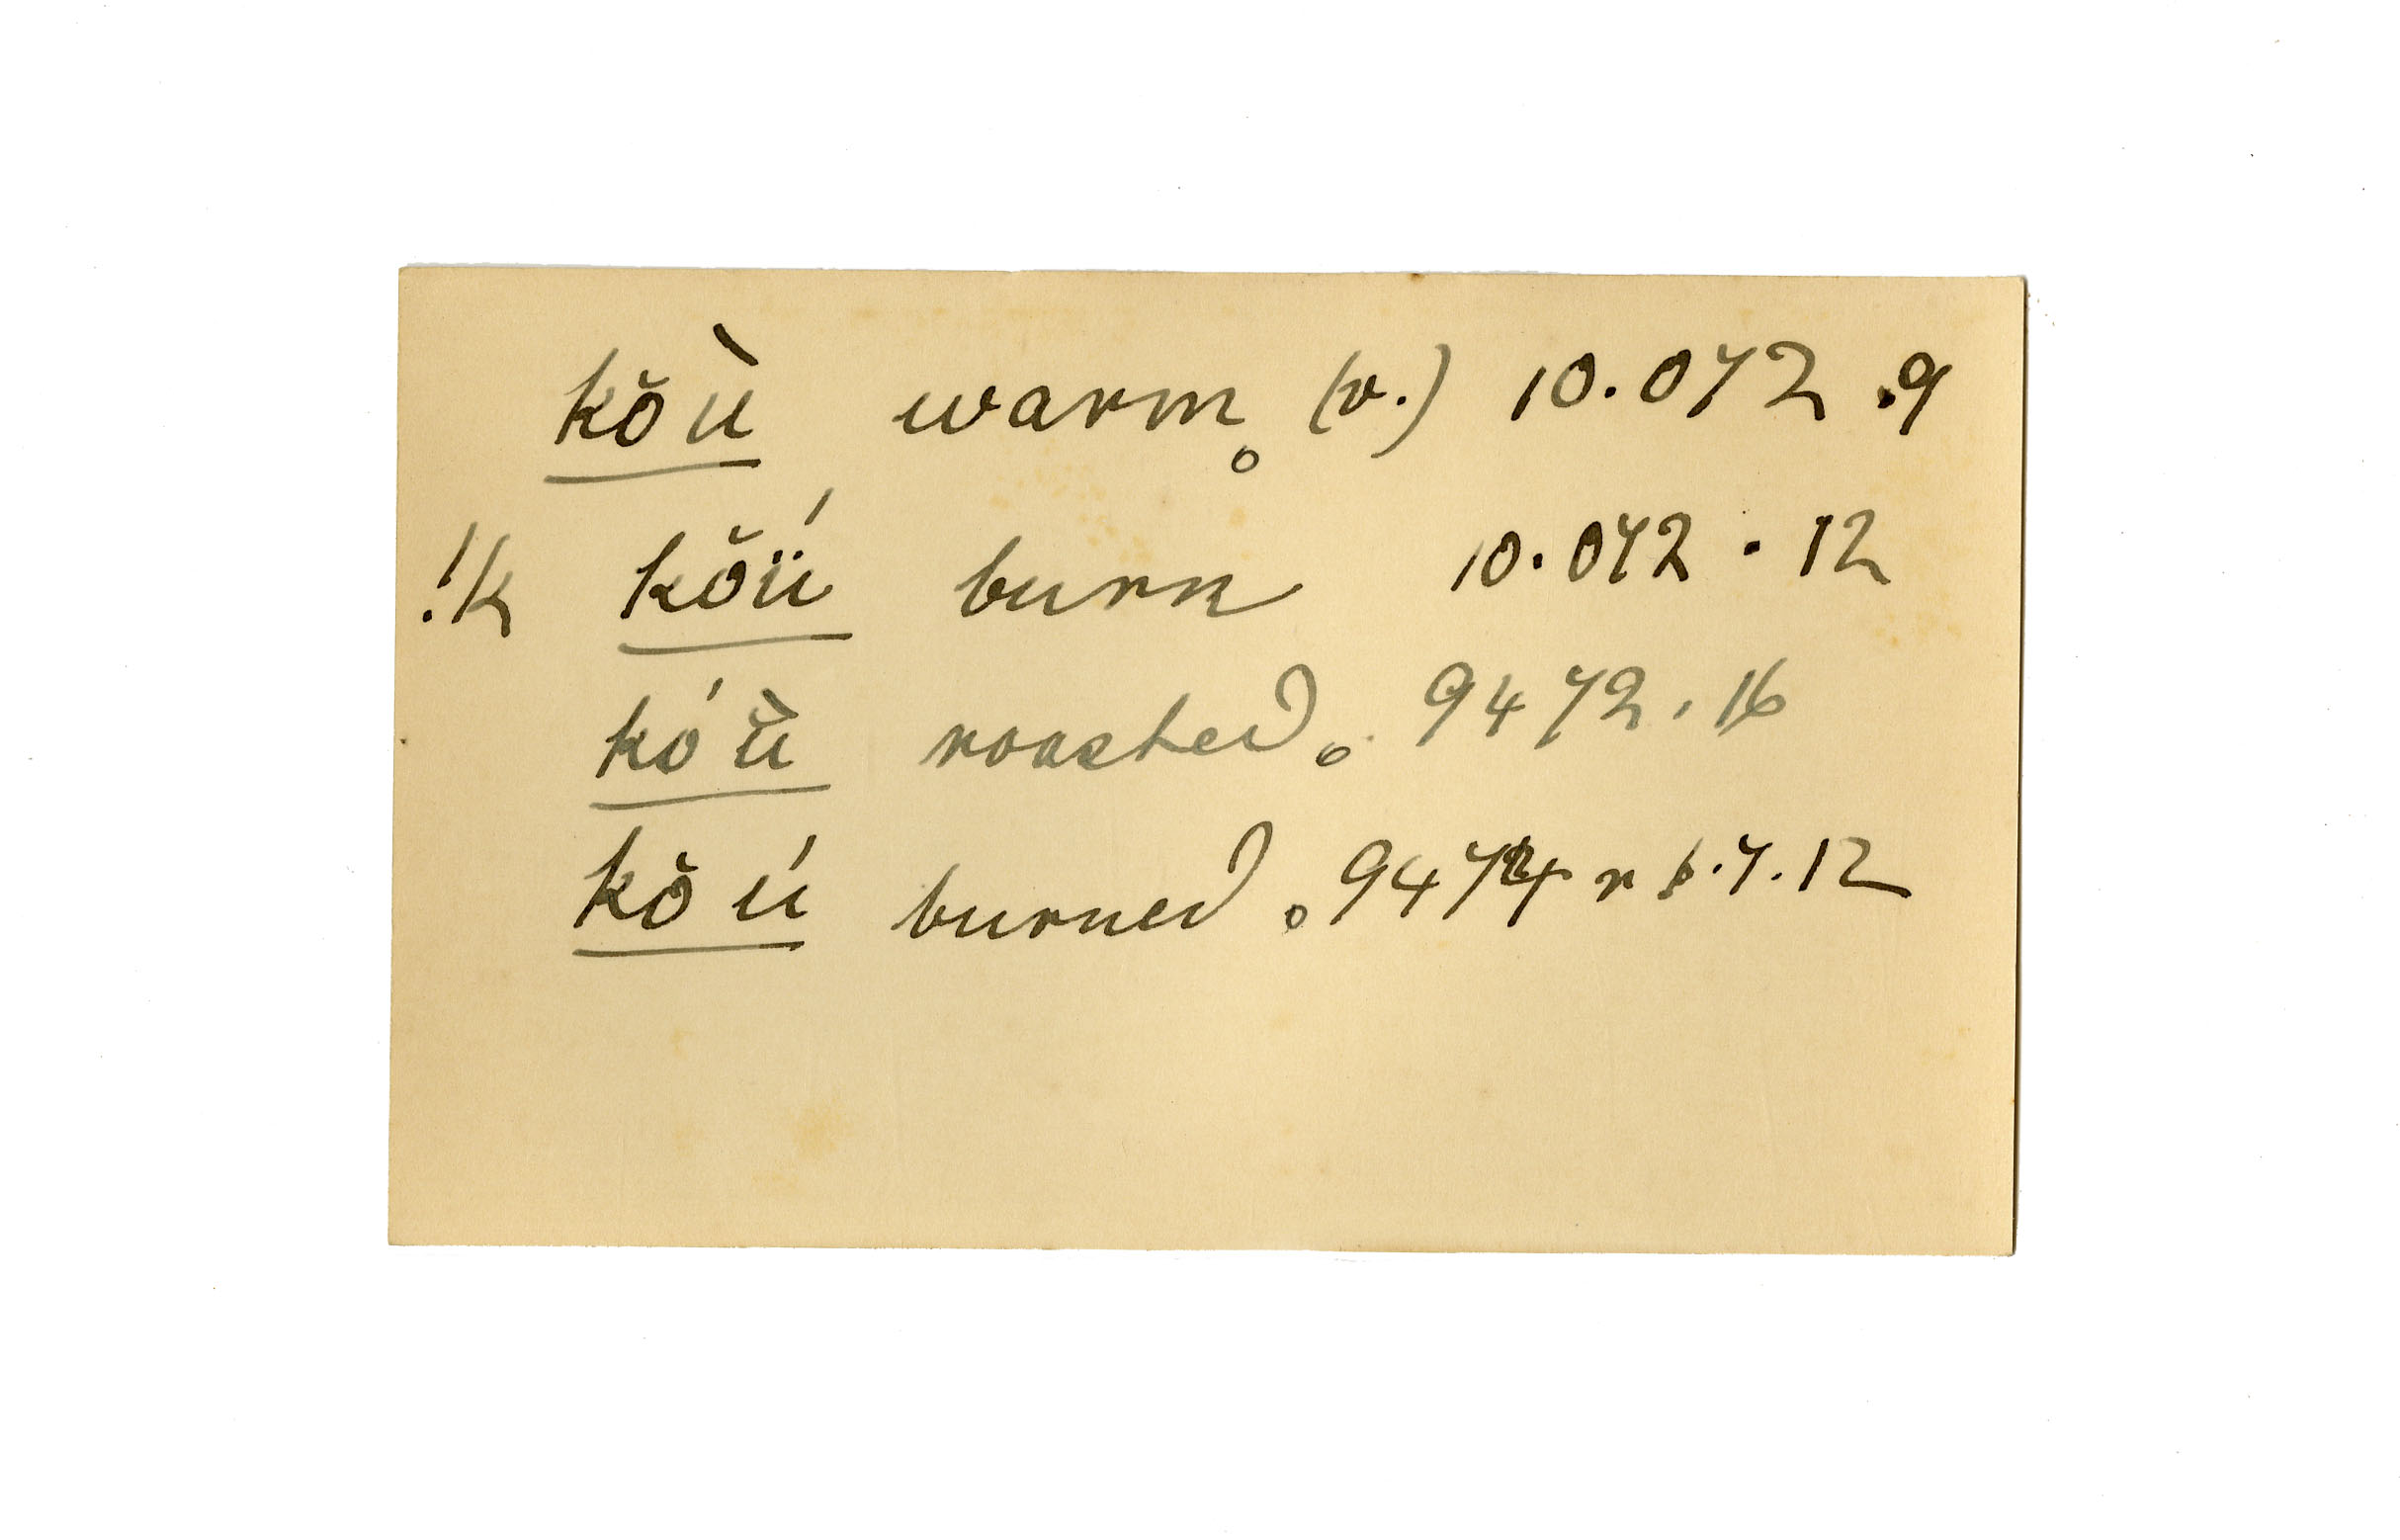 kŏù warm. (v.) 10.072.9
!k kŏüí burn 10.072.12
kó'ŭ̀ roasted. 9472.16
kŏú burned. 9474 r .7.12